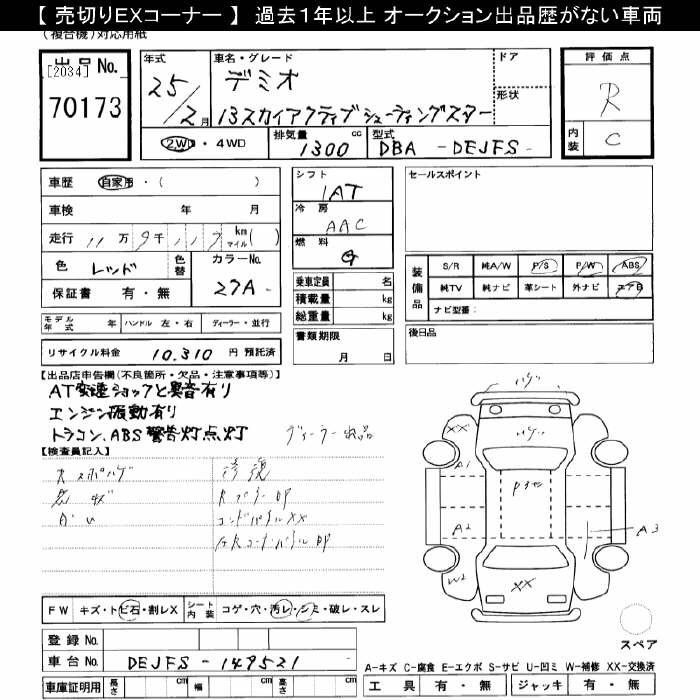 【 売切りEXコーナー 】 過去1年以上 オークション出品歴がない車両
(複合機)対応用紙
出品 No.
[2034]
70173
年式
25/2月
車名・グレード
デミオ
13スカイアクティブシューティングスター
ドア
形状
評価点
R
内装
C
2WD・4WD
排気量
1300 cc
型式
DBA - DEJFS -
車歴 自家用・( )
車検 年 月
走行 11万9千 km マイル( )
色 レッド
色替
カラーNo.
27A -
保証書 有・無
シフト
1AT
冷房
AAC
燃料
G
乗車定員 名
積載量 kg
総重量 kg
書類期限
月 日
セールスポイント
装備品
S/R 純A/W P/S P/W ABS
純TV 純ナビ 革シート 外ナビ エアB
ナビ型番:
後日品
モデル年式 年 ハンドル 左・右 ディーラー・並行
リサイクル料金 10,310 円 預託済
【出品店申告欄(不良箇所・欠品・注意事項等)】
AT変速ショックと異音有り
エンジン振動有り
トラコン、ABS警告灯点灯
ディーラー出品
【検査員記入】
修復
コアパネルXX
ハゲ
XX
A1
A2
W2
XX
A3
FW キズ・トビ石・割レX
シート内装 コゲ・穴・汚レ・シミ・破レ・スレ
登録 No.
車台 No. DEJFS - 149521
車庫証明用 長さ cm 幅 cm 高さ cm
スペア
A-キズ C-腐食 E-エクボ S-サビ U-凹ミ W-補修 XX-交換済
工具 有・無 ジャッキ 有・無